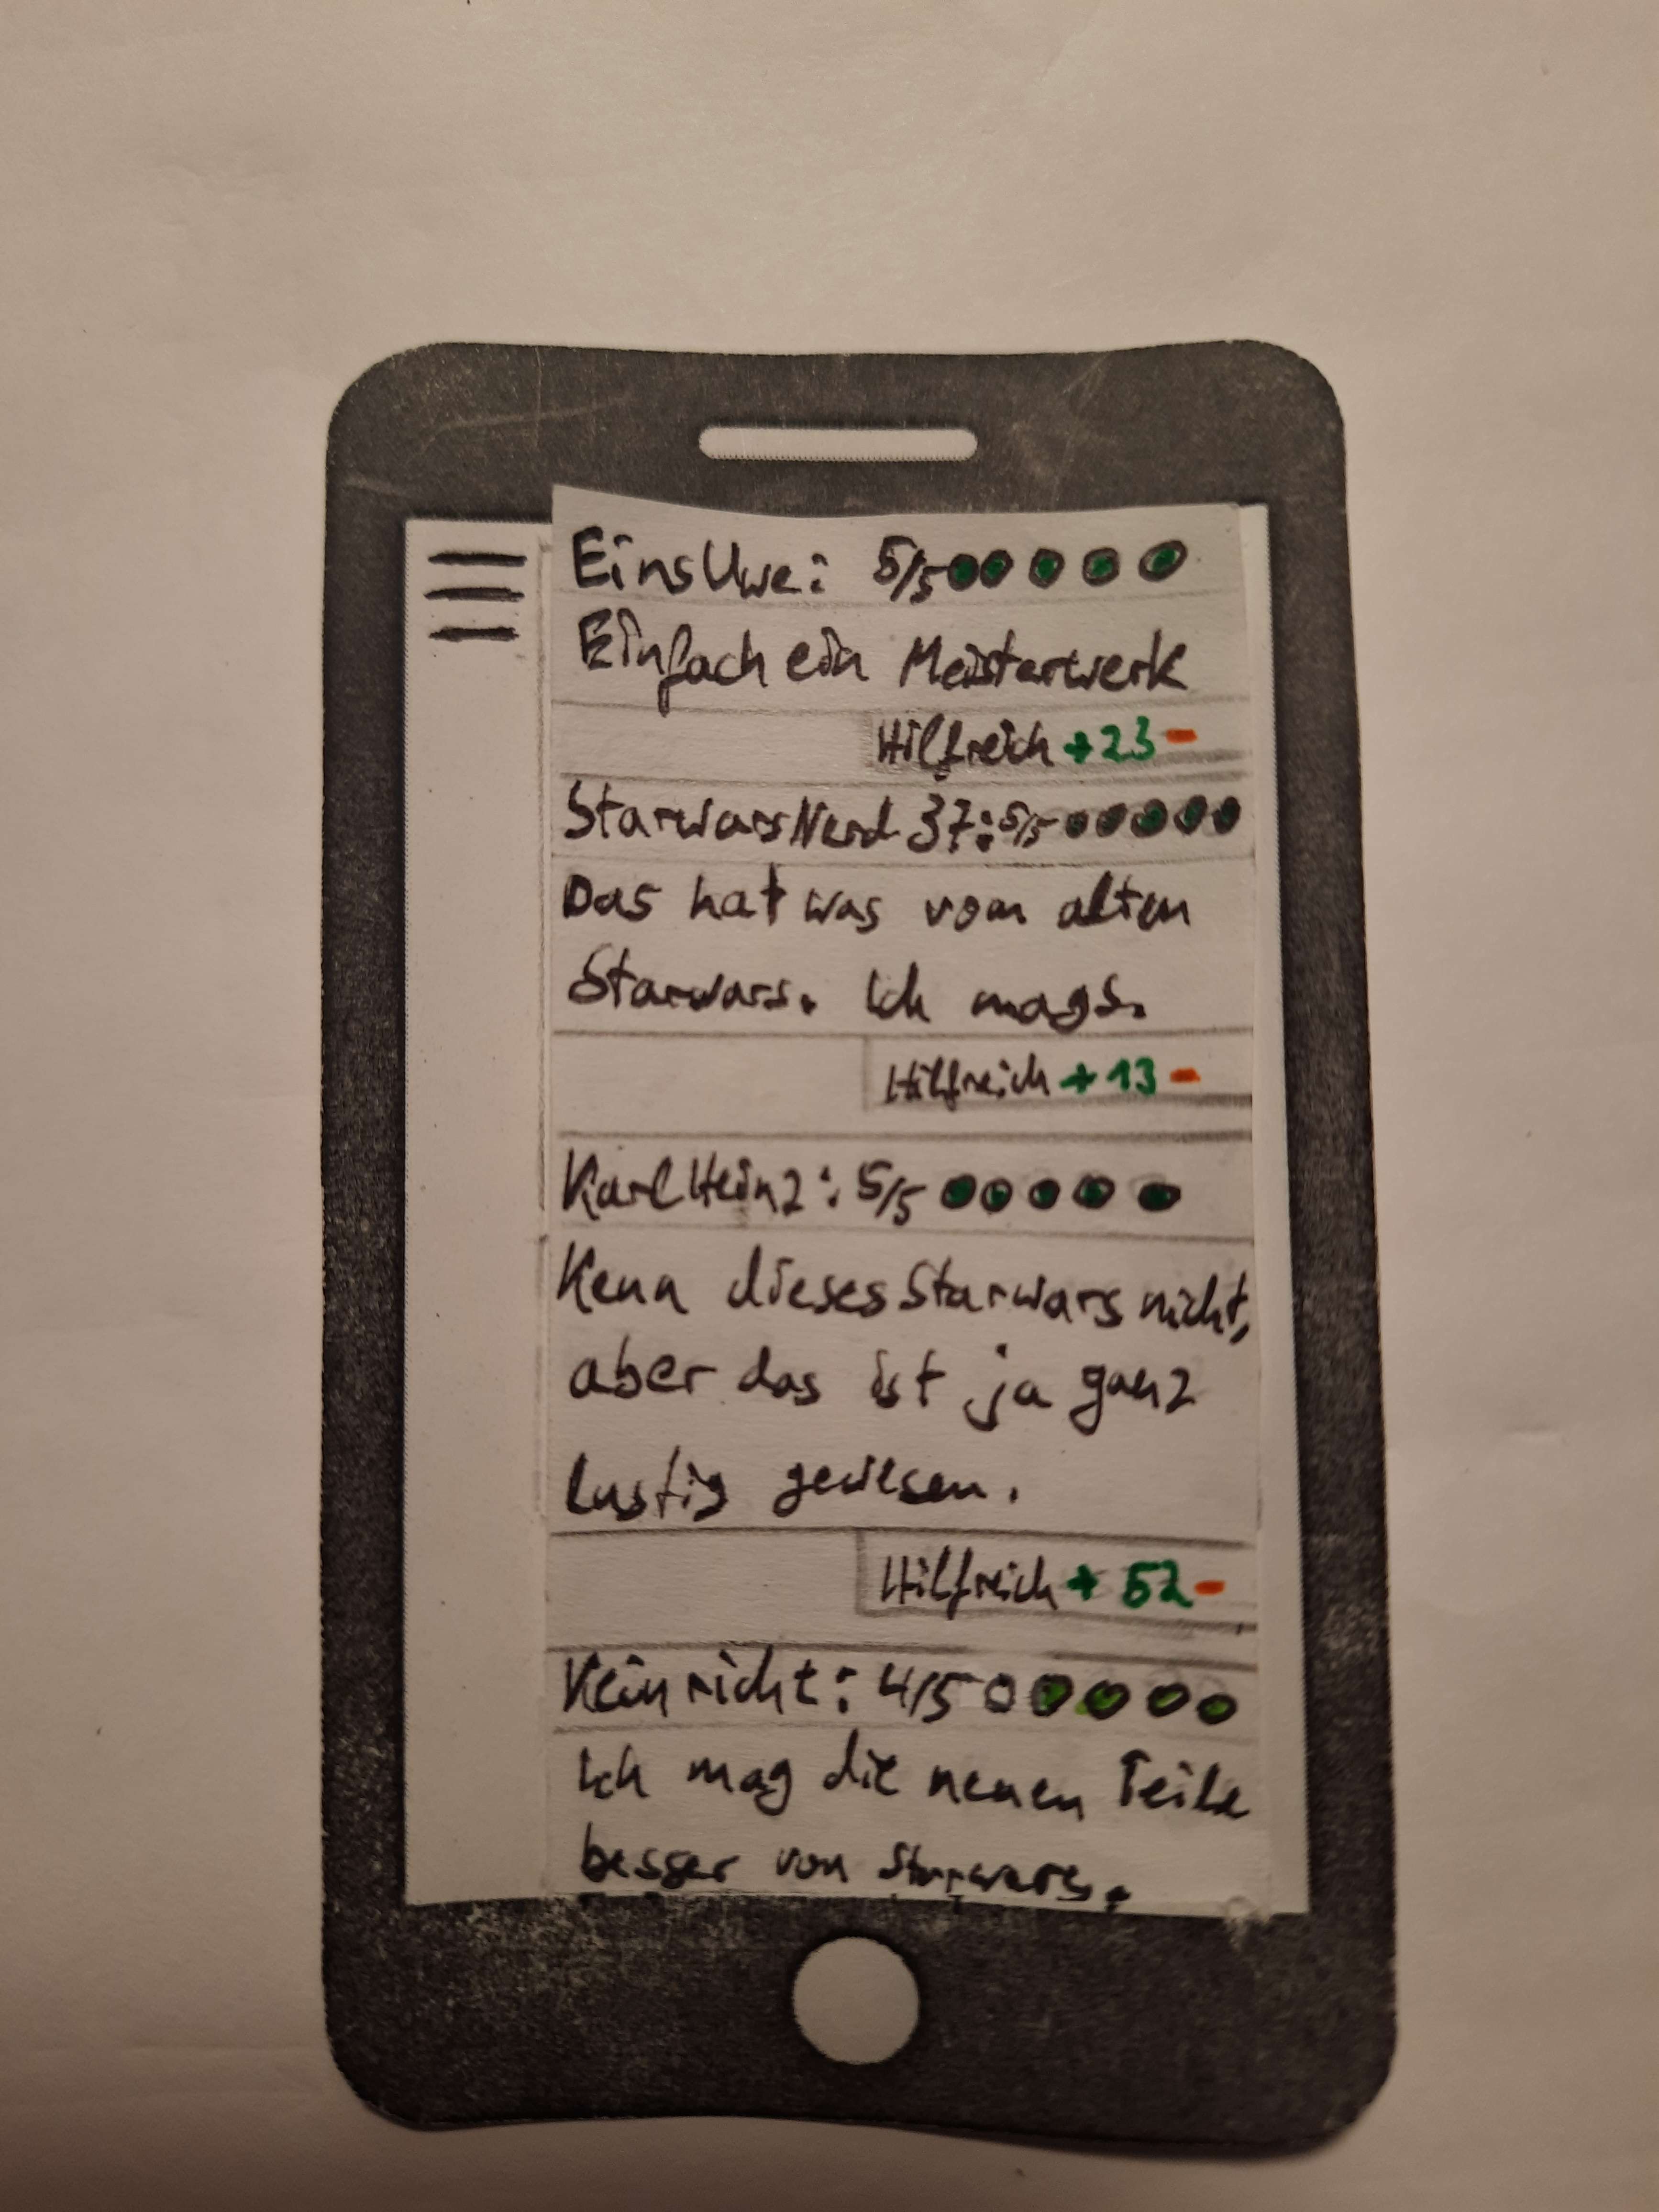 EinsUwe: 5/5
Einfach ein Meisterwerk
Hilfreich +23-
StarwarsNerd37: 5/5
Das hat was vom alten
Starwars. Ich mags.
Hilfreich +13-
KarlHeinz: 5/5
Kenn dieses Starwars nicht,
aber das ist ja ganz
lustig gewesen.
Hilfreich +52-
4/5
Ich mag die neuen Teile
besser von Starwars.